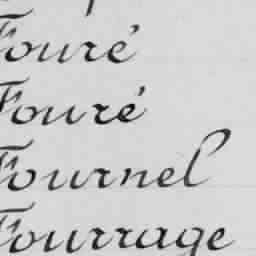 Fouré
Fouré
Fournel
Fourrage